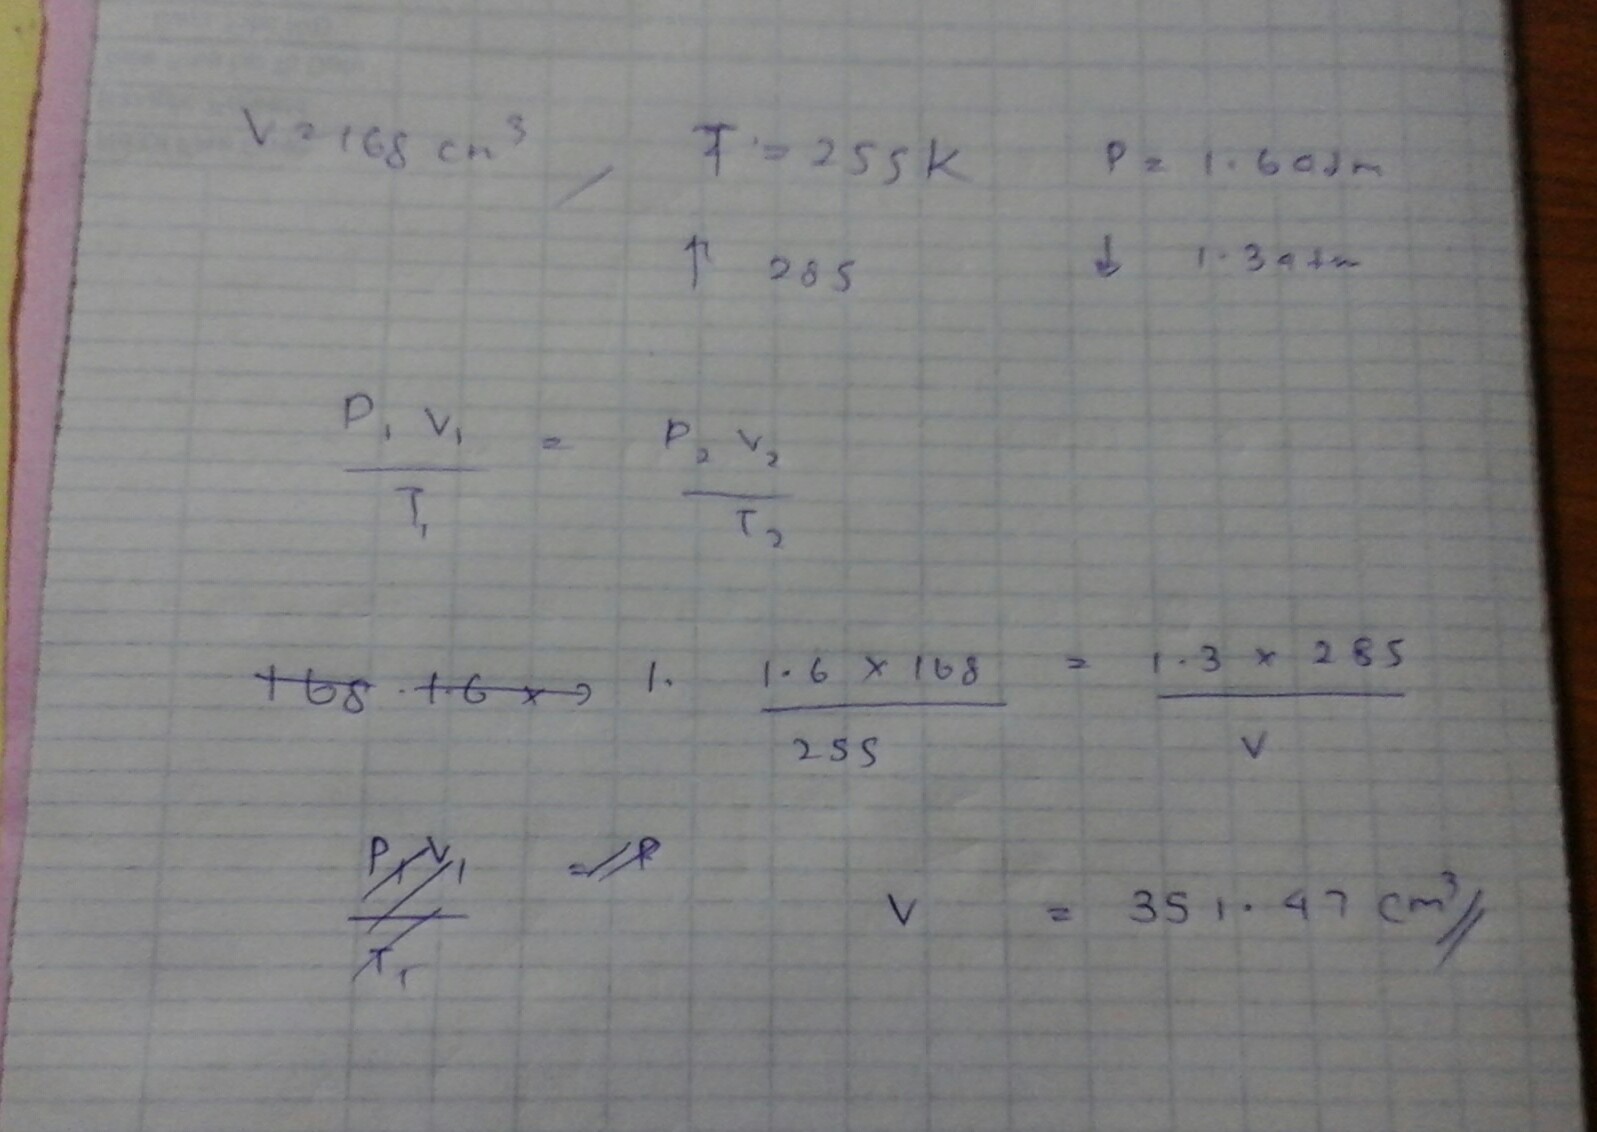 V = 168 cm³ / T = 255K P = 1.6 atm
↑ 285 ↓ 1.3 atm
P₁ V₁ = P₂ V₂
T₁ T₂
168 . 1.6 x 1. 1.6 x 168 = 1.3 x 285
255 V
P₁ V₁ = P
T₁
V = 351.47 cm³//